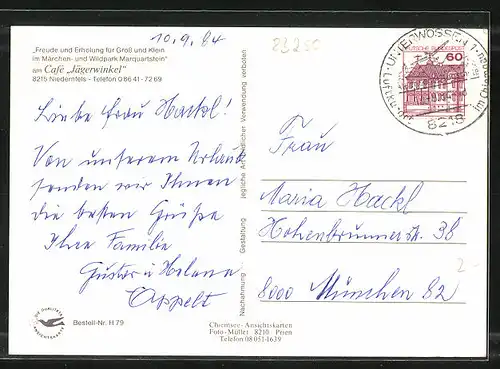 10.9.84
83250
„Freude und Erholung für Groß und Klein
im Märchen- und Wildpark Marquartstein“
am Café „Jägerwinkel“
8215 Niedernfels - Telefon 0 86 41 - 72 69
Liebe Frau Hackl!
Von unserem Urlaub
senden wir Ihnen
die besten Grüße
Ihre Familie
Gustav u Helene
Appelt
Bestell-Nr. H 79
Nachahmung, Gestaltung jegliche Verwendung verboten
Chiemsee-Ansichtskarten
Foto-Müller 8210 Prien
Telefon 08051-1639
DEUTSCHE BUNDESPOST
60
UNTERWÖSSEN 1
8218
Frau
Maria Hackl
Hohenbrunnerstr. 38
8000 München 82
2.-